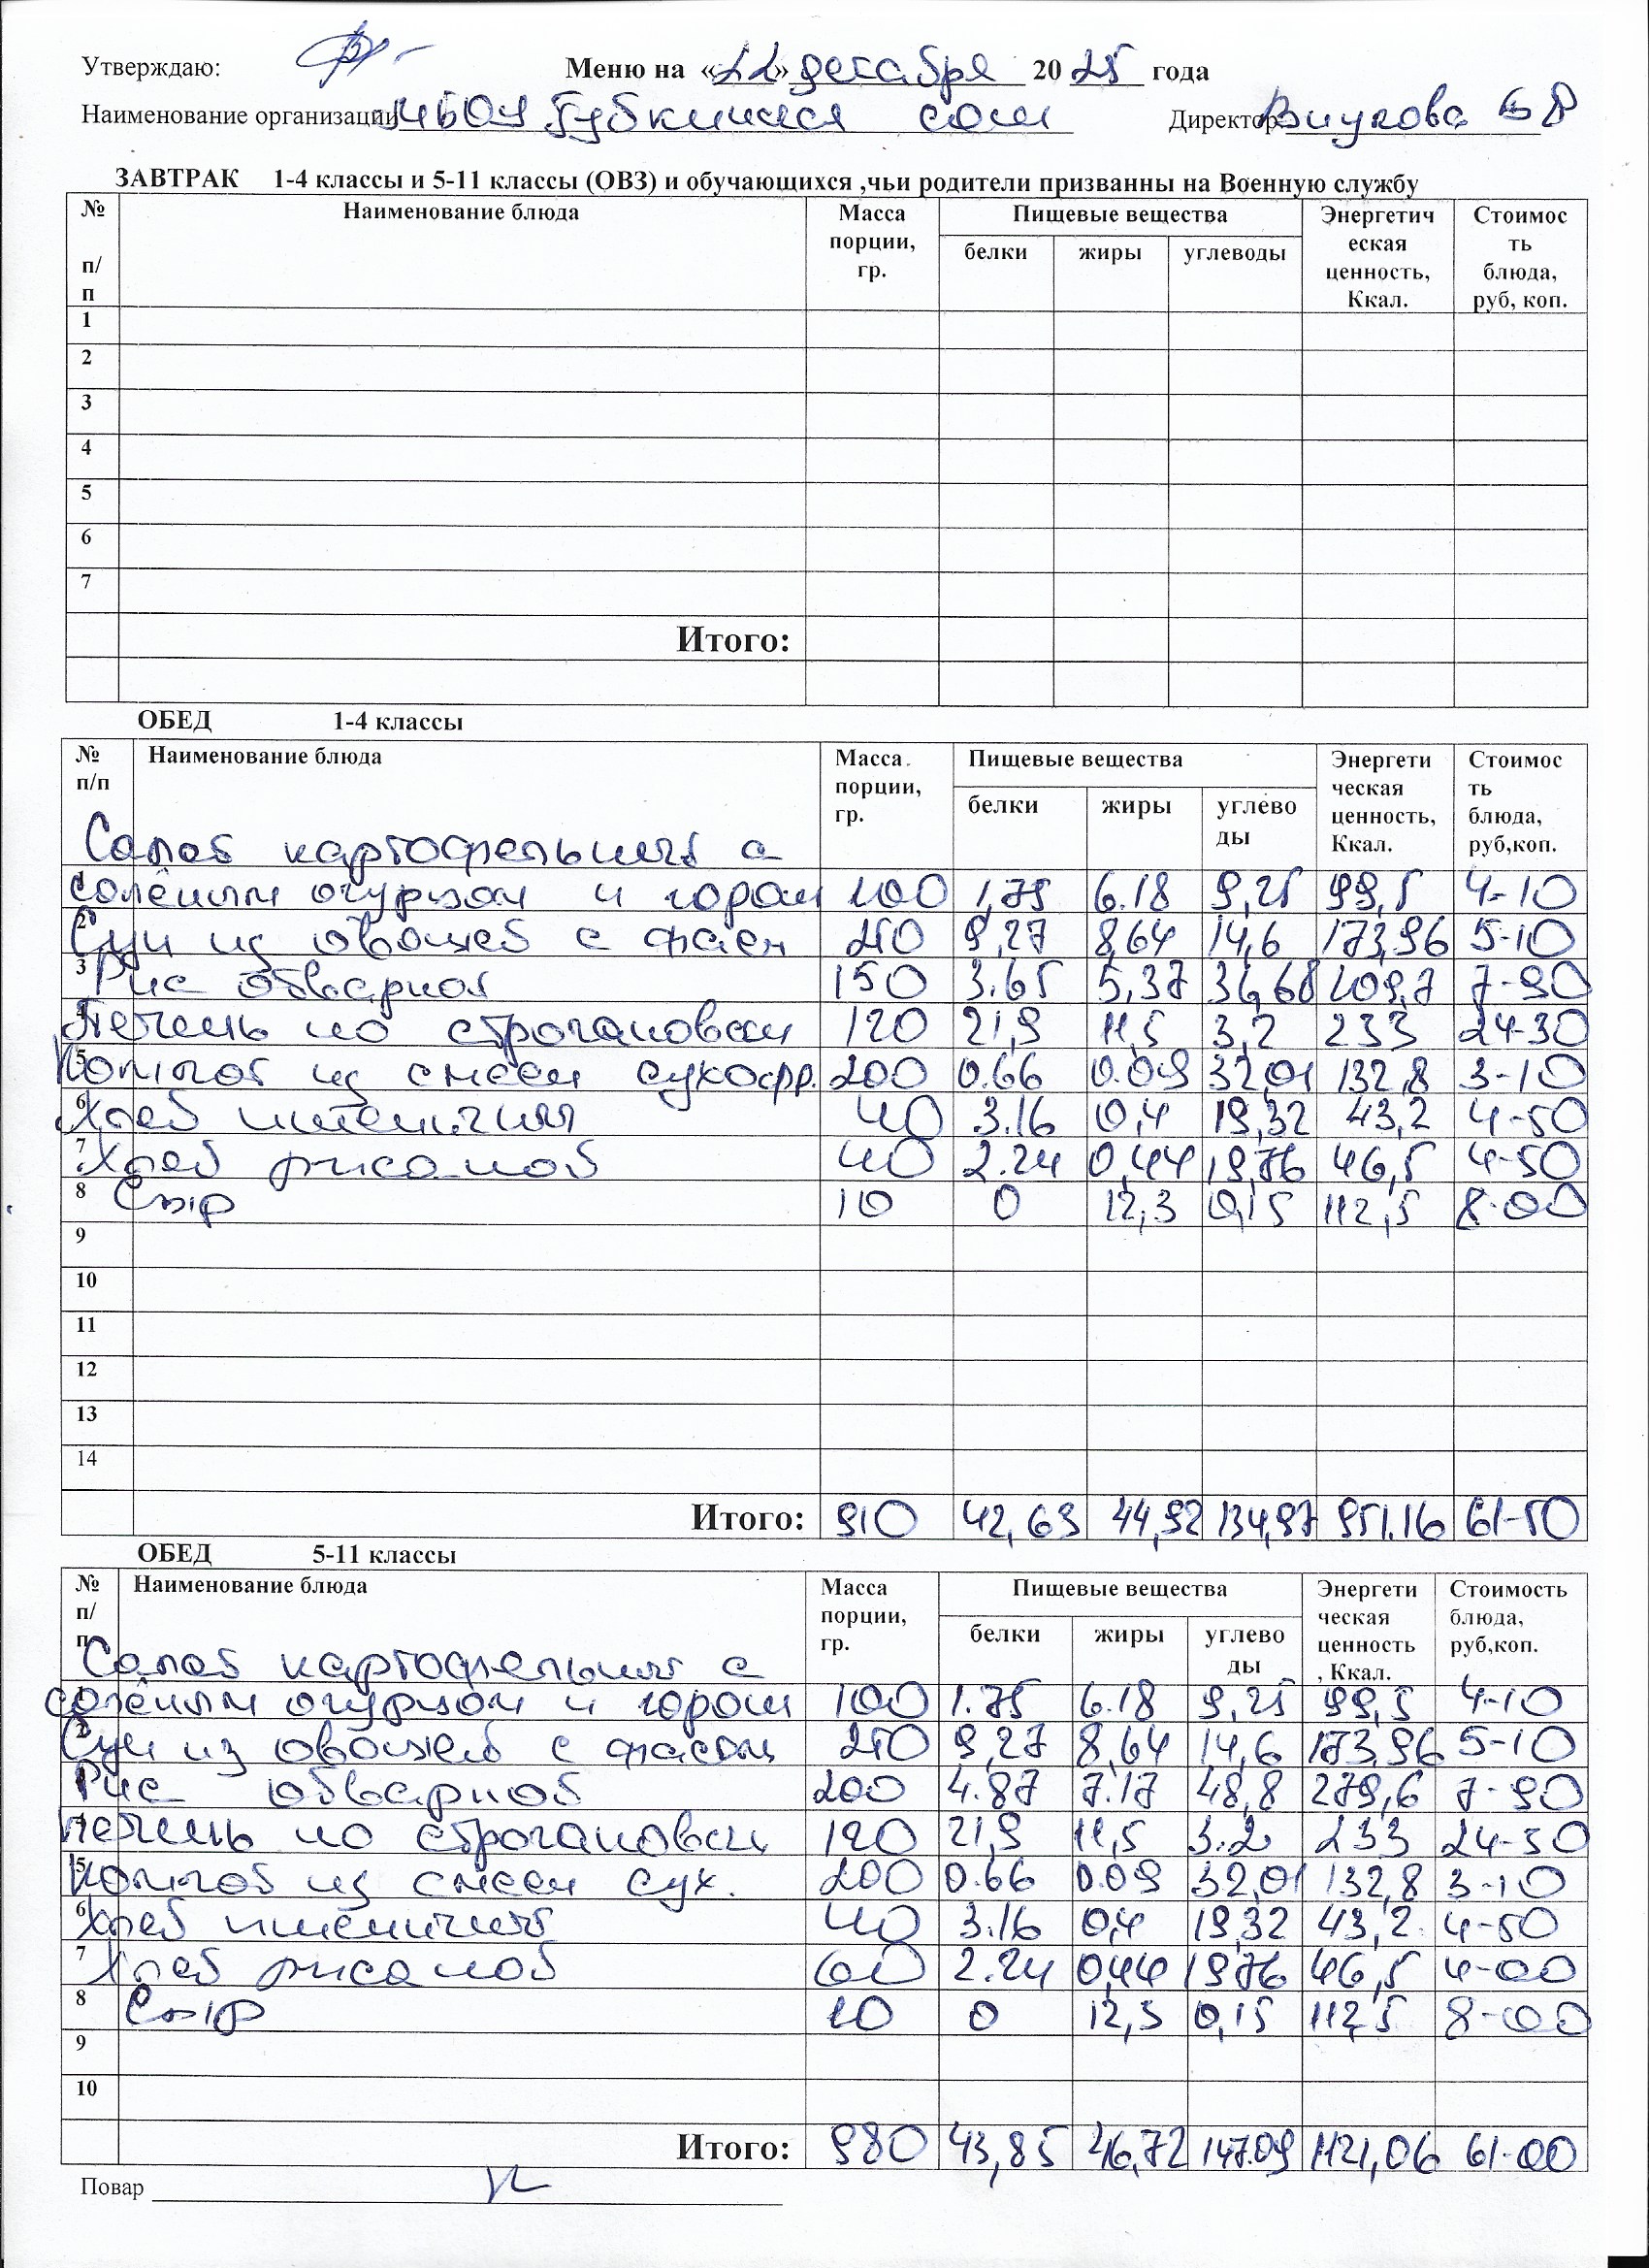 Утверждаю:
Меню на «22» декабря 2025 года
Наименование организации МБОУ Губкинская сош Директор
ЗАВТРАК 1-4 классы и 5-11 классы (ОВЗ) и обучающихся ,чьи родители призванны на Военную службу
№ п/п Наименование блюда Масса порции, гр. Пищевые вещества Энергетическая ценность, Ккал. Стоимость блюда, руб, коп.
белки жиры углеводы
1
2
3
4
5
6
7
Итого:
ОБЕД 1-4 классы
№ п/п Наименование блюда Масса порции, гр. Пищевые вещества Энергетическая ценность, Ккал. Стоимость блюда, руб,коп.
белки жиры углеводы
Салат картофельный с
1 солёным огурцом и горош 100 1,75 6.18 9,25 99,5 4-10
2 Суп из овощей с фасол 250 9,27 8,64 14,6 173,96 5-10
3 Рис отварной 150 3.65 5,37 36,68 209,7 7-90
4 Печень по строгановски 120 21,9 11,5 3,2 233 24-30
5 Компот из смеси сухофр. 200 0.66 0.09 32,01 132,8 3-10
6 Хлеб пшеничный 40 3.16 0,4 19,32 43,2 4-50
7 Хлеб ржаной 40 2.24 0,44 19,76 46,5 4-50
8 Сыр 10 0 12,3 0,15 112,5 8-00
9
10
11
12
13
14
Итого: 910 42,63 44,92 134,97 951.16 61-50
ОБЕД 5-11 классы
№ п/п Наименование блюда Масса порции, гр. Пищевые вещества Энергетическая ценность, Ккал. Стоимость блюда, руб,коп.
белки жиры углеводы
Салат картофельный с
1 солёным огурцом и горош 100 1.75 6.18 9,25 99,5 4-10
2 Суп из овощей с фасол 250 9,27 8,64 14,6 173,96 5-10
Рис отварной 200 4.87 7.17 48,8 279,6 7-90
Печень по строгановски 120 21,9 11,5 3.2 233 24-30
5 Компот из смеси сух. 200 0.66 0.09 32,01 132,8 3-10
6 Хлеб пшеничный 40 3.16 0,4 19,32 43,2 4-50
7 Хлеб ржаной 60 2.24 0,44 19,76 46,5 4-00
8 Сыр 10 0 12,3 0,15 112,5 8-00
9
10
Итого: 980 43,85 46,72 147.09 1121,06 61-00
Повар